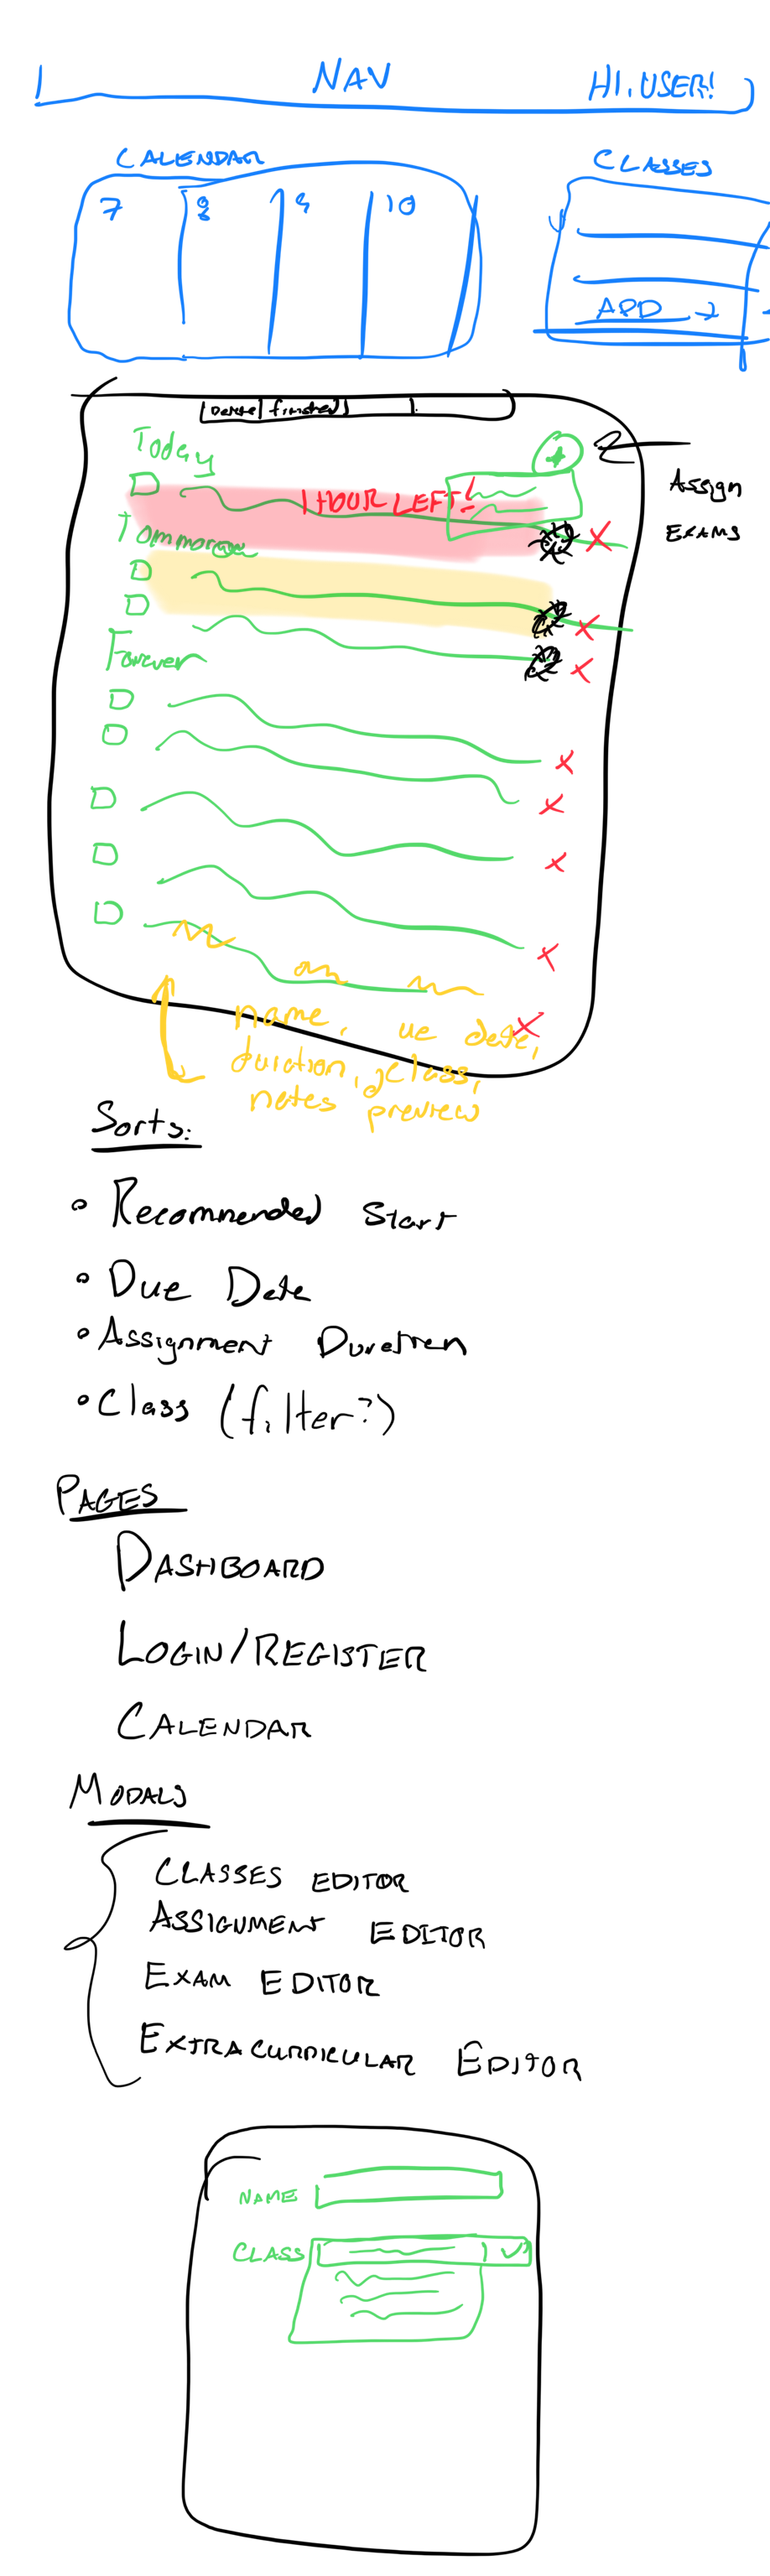 NAV HI, USER!
CALENDAR CLASSES
7 8 9 10
ADD →
Delete finished
Today
+
Assign
Exams
1 HOUR LEFT!
Tommorow
Forever
name, ue date,
duration, class,
notes preview
Sorts:
Recommended Start
Due Date
Assignment Duration
Class (filter?)
PAGES
DASHBOARD
LOGIN/REGISTER
CALENDAR
MODALS
CLASSES EDITOR
ASSIGNMENT EDITOR
EXAM EDITOR
EXTRACURRICULAR EDITOR
NAME
CLASS